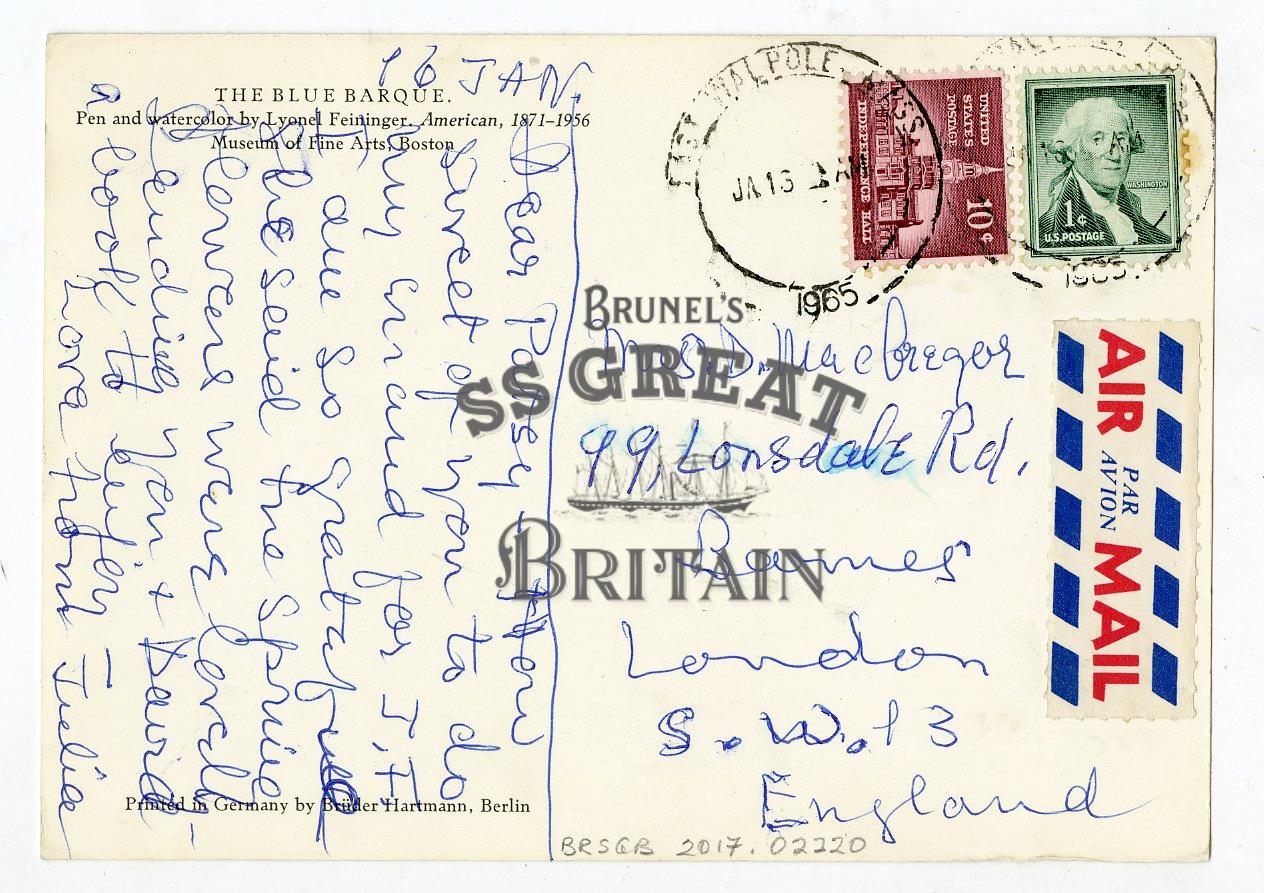 THE BLUE BARQUE.
Pen and watercolor by Lyonel Feininger. American, 1871–1956
Museum of Fine Arts, Boston
16 JAN.
Dear Pansy – How
sweet of you to do
my errand for J.F
I am so grateful
She said the Spring
flowers were lovely –
Sending you & David
a book to enjoy –
Love from Julia
Printed in Germany by Brüder Hartmann, Berlin
EAST WALPOLE, MASS.
JA 16 AM
1965
UNITED
STATES
POSTAGE
INDEPENDENCE HALL
10¢
WASHINGTON
1¢
U.S. POSTAGE
AM
1965
AIR MAIL
PAR
AVION
Mrs. D. MacGregor
99, Lonsdale Rd.
Barnes
London
S.W.13
England
BRUNEL'S
SS GREAT
BRITAIN
BRSGB 2017.02220